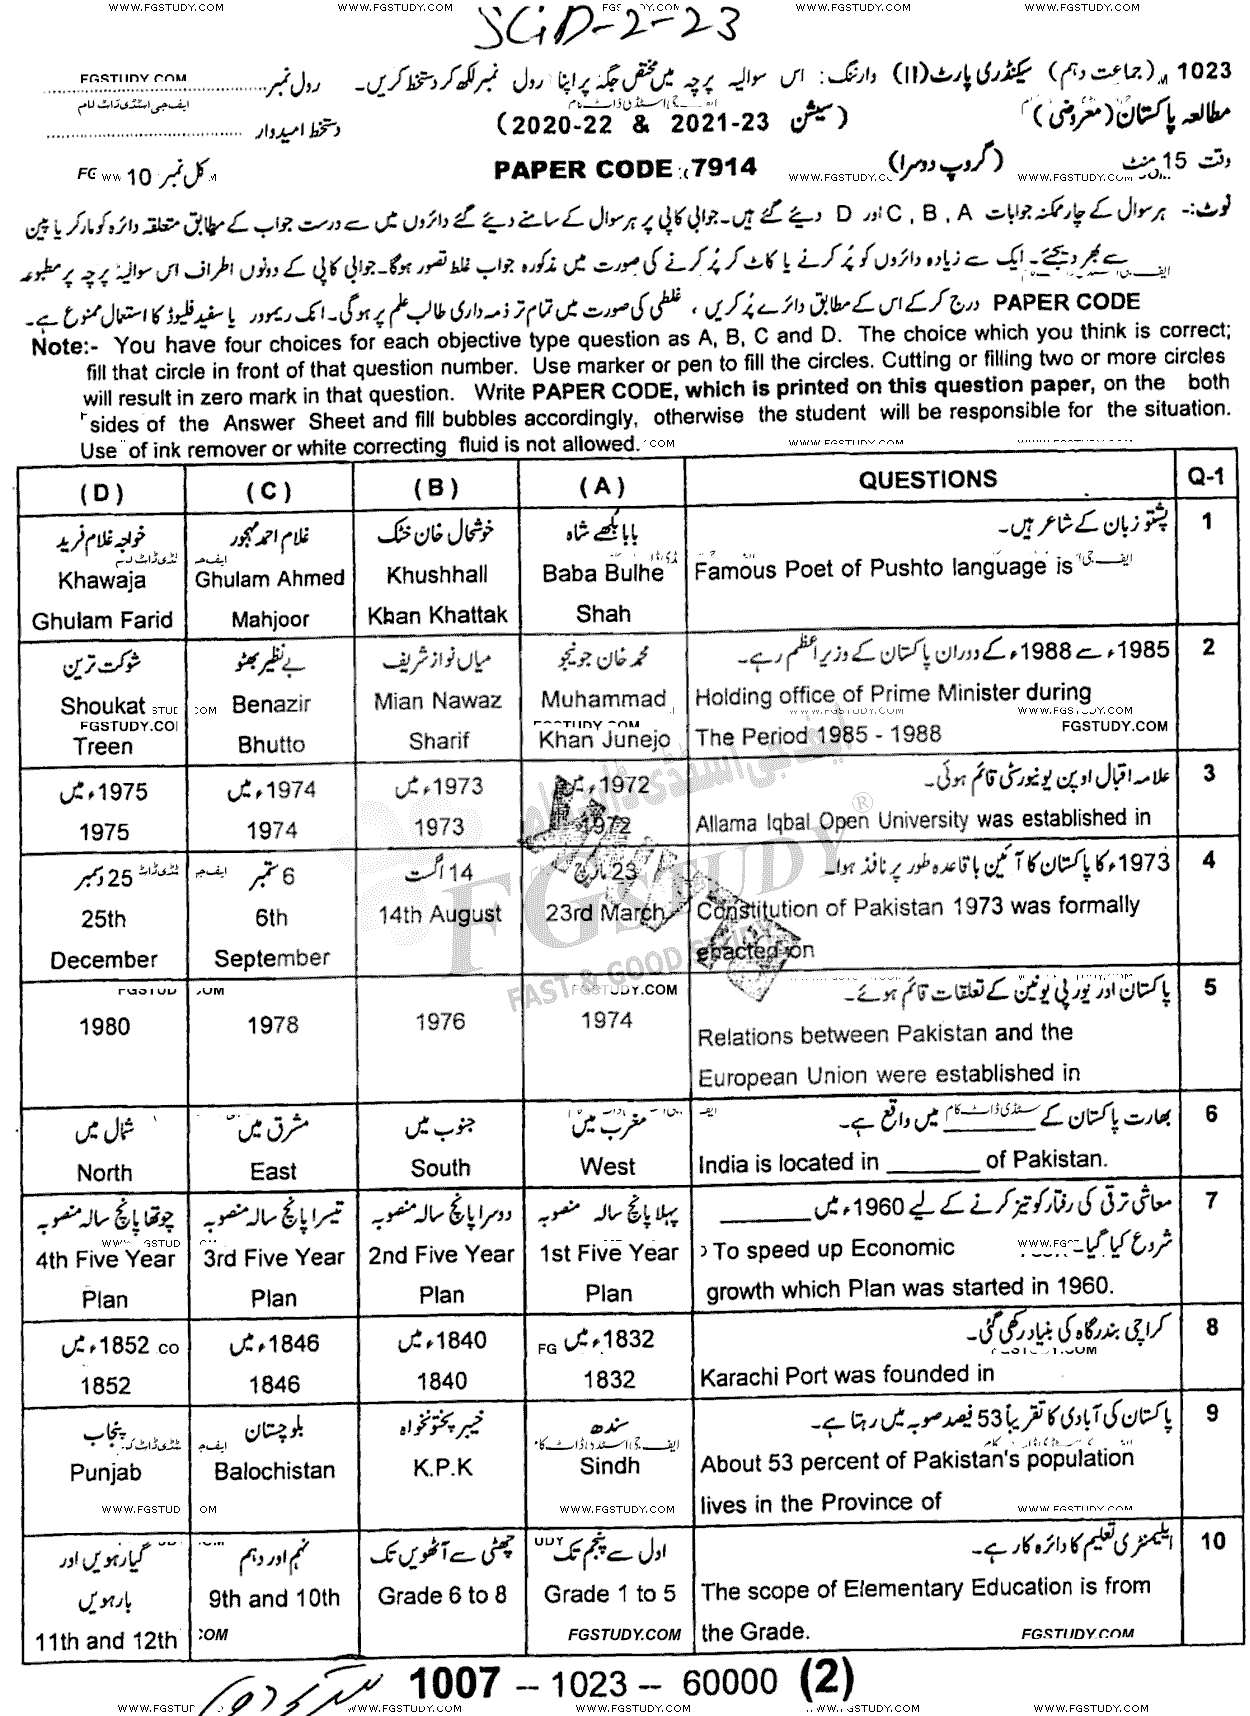 SGD-2-23
1023 (جماعت دہم) سیکنڈری پارٹ (II) وارننگ: اس سوالیہ پرچہ میں مختص جگہ پر اپنا رول نمبر لکھ کر دستخط کریں۔ رول نمبر
مطالعہ پاکستان (معروضی) (سیشن 2021-23 & 2020-22) دستخط امیدوار
وقت 15 منٹ (گروپ دوسرا) PAPER CODE 7914 کل نمبر 10
نوٹ:- ہر سوال کے چار ممکنہ جوابات C , B , A اور D دیئے گئے ہیں۔ جوابی کاپی پر ہر سوال کے سامنے دیئے گئے دائروں میں سے درست جواب کے مطابق متعلقہ دائرہ کو مارکر یا پین
سے بھر دیجئے۔ ایک سے زیادہ دائروں کو پُر کرنے یا کاٹ کر پُر کرنے کی صورت میں مذکورہ جواب غلط تصور ہوگا۔ جوابی کاپی کے دونوں اطراف اس سوالیہ پرچہ پر مطبوعہ
PAPER CODE درج کر کے اس کے مطابق دائرے پُر کریں، غلطی کی صورت میں تمام تر ذمہ داری طالب علم پر ہوگی۔ انک ریموور یا سفید فلیوڈ کا استعمال ممنوع ہے۔
Note:- You have four choices for each objective type question as A, B, C and D. The choice which you think is correct;
fill that circle in front of that question number. Use marker or pen to fill the circles. Cutting or filling two or more circles
will result in zero mark in that question. Write PAPER CODE, which is printed on this question paper, on the both
sides of the Answer Sheet and fill bubbles accordingly, otherwise the student will be responsible for the situation.
Use of ink remover or white correcting fluid is not allowed.
(D) (C) (B) (A) QUESTIONS Q-1
1 پشتو زبان کے شاعر ہیں۔
Famous Poet of Pushto language is
بابا بلھے شاہ
Baba Bulhe
Shah
خوشحال خان خٹک
Khushhall
Khan Khattak
غلام احمد مہجور
Ghulam Ahmed
Mahjoor
خواجہ غلام فرید
Khawaja
Ghulam Farid
2 1985ء سے 1988ء کے دوران پاکستان کے وزیراعظم رہے۔
Holding office of Prime Minister during
The Period 1985 - 1988
محمد خان جونیجو
Muhammad
Khan Junejo
میاں نواز شریف
Mian Nawaz
Sharif
بے نظیر بھٹو
Benazir
Bhutto
شوکت ترین
Shoukat
Treen
3 علامہ اقبال اوپن یونیورسٹی قائم ہوئی۔
Allama Iqbal Open University was established in
1972ء میں
1972
1973ء میں
1973
1974ء میں
1974
1975ء میں
1975
4 1973ء کا پاکستان کا آئین باقاعدہ طور پر نافذ ہوا۔
Constitution of Pakistan 1973 was formally
enacted on
23 مارچ
23rd March
14 اگست
14th August
6 ستمبر
6th
September
25 دسمبر
25th
December
5 پاکستان اور یورپی یونین کے تعلقات قائم ہوئے۔
Relations between Pakistan and the
European Union were established in
1974
1976
1978
1980
6 بھارت پاکستان کے ______ میں واقع ہے۔
India is located in ______ of Pakistan.
مغرب میں
West
جنوب میں
South
مشرق میں
East
شمال میں
North
7 معاشی ترقی کی رفتار کو تیز کرنے کے لیے 1960ء میں ______
شروع کیا گیا۔
To speed up Economic
growth which Plan was started in 1960.
پہلا پانچ سالہ منصوبہ
1st Five Year
Plan
دوسرا پانچ سالہ منصوبہ
2nd Five Year
Plan
تیسرا پانچ سالہ منصوبہ
3rd Five Year
Plan
چوتھا پانچ سالہ منصوبہ
4th Five Year
Plan
8 کراچی بندرگاہ کی بنیاد رکھی گئی۔
Karachi Port was founded in
1832ء میں
1832
1840ء میں
1840
1846ء میں
1846
1852ء میں
1852
9 پاکستان کی آبادی کا تقریباً 53 فیصد صوبہ میں رہتا ہے۔
About 53 percent of Pakistan's population
lives in the Province of
سندھ
Sindh
خیبر پختونخواہ
K.P.K
بلوچستان
Balochistan
پنجاب
Punjab
10 ایلیمنٹری تعلیم کا دائرہ کار ہے۔
The scope of Elementary Education is from
the Grade.
اول سے پنجم تک
Grade 1 to 5
چھٹی سے آٹھویں تک
Grade 6 to 8
نہم اور دہم
9th and 10th
گیارہویں اور
بارہویں
11th and 12th
1007 -- 1023 -- 60000 (2)
FGSTUDY
FAST & GOOD STUDY
WWW.FGSTUDY.COM